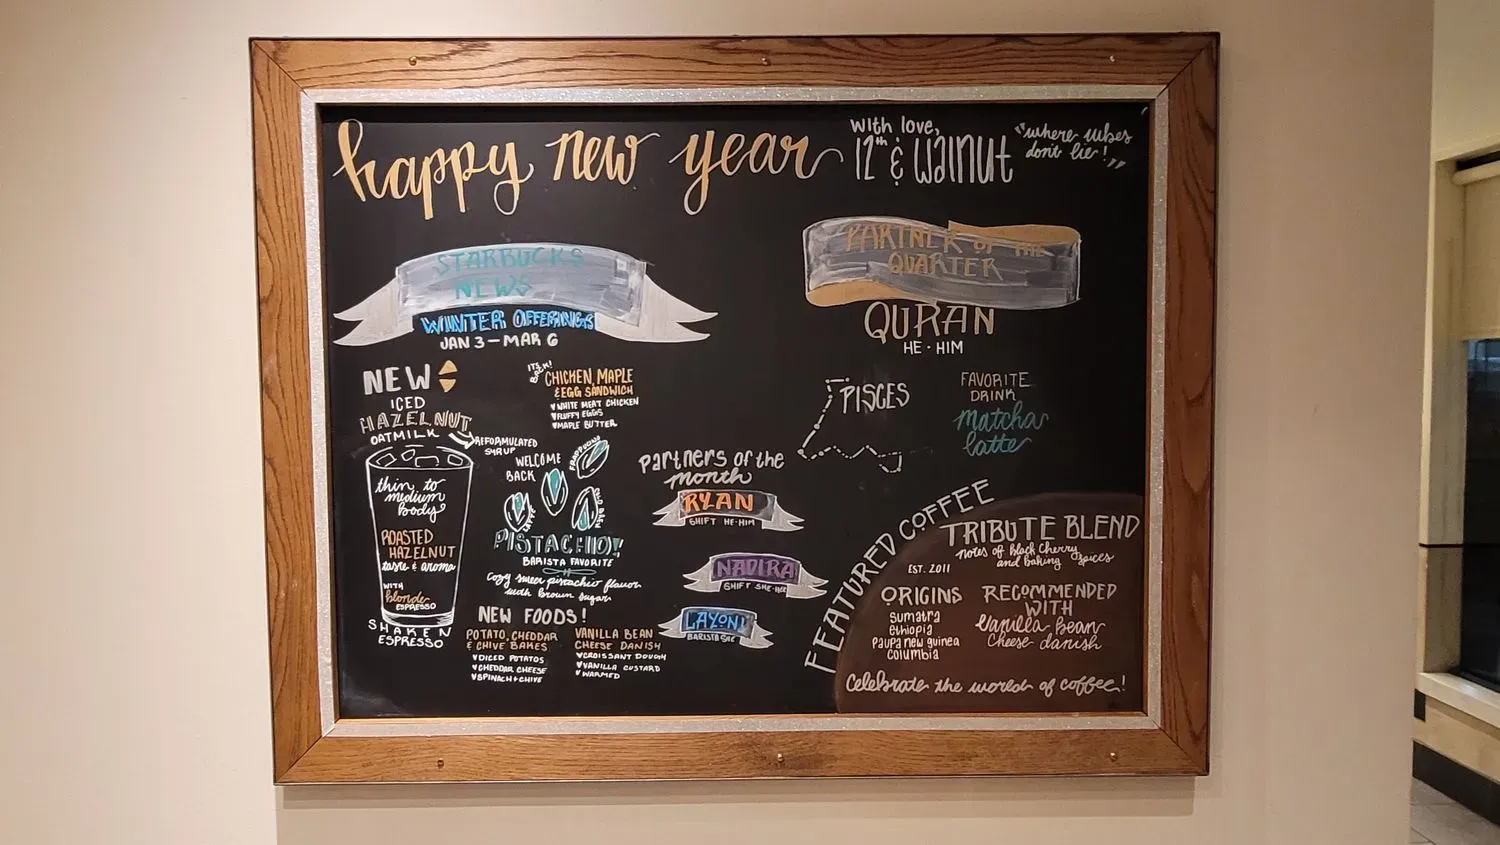 happy new year
with love,
12th & walnut
"where vibes
don't lie!"
STARBUCKS
NEWS
WINTER OFFERINGS
JAN 3 — MAR 6
NEW
ICED
HAZELNUT
OATMILK
SHAKEN
ESPRESSO
thin to
medium
body
ROASTED
HAZELNUT
taste & aroma
WITH
blonde
ESPRESSO
REFORMULATED
SYRUP
IT'S
BACK!
CHICKEN, MAPLE
& EGG SANDWICH
WHITE MEAT CHICKEN
FLUFFY EGGS
MAPLE BUTTER
WELCOME
BACK
FRAPPUCCINO
LATTE
COLD BREW
PISTACHIO!
BARISTA FAVORITE
cozy sweet pistachio flavour
with brown sugar
NEW FOODS!
POTATO, CHEDDAR
& CHIVE BAKES
DICED POTATOS
CHEDDAR CHEESE
SPINACH + CHIVE
VANILLA BEAN
CHEESE DANISH
CROISSANT DOUGH
VANILLA CUSTARD
WARMED
Partners of the
month
RYAN
SHIFT HE·HIM
NADIRA
SHIFT SHE·HER
LAYONI
BARISTA SHE
PARTNER OF THE
QUARTER
QURAN
HE · HIM
PISCES
FAVORITE
DRINK
Matcha
latte
FEATURED COFFEE
TRIBUTE BLEND
notes of black cherry
and baking spices
EST. 2011
ORIGINS
Sumatra
ethiopia
Paupa new guinea
Columbia
RECOMMENDED
WITH
Vanilla bean
Cheese danish
Celebrate the world of coffee!